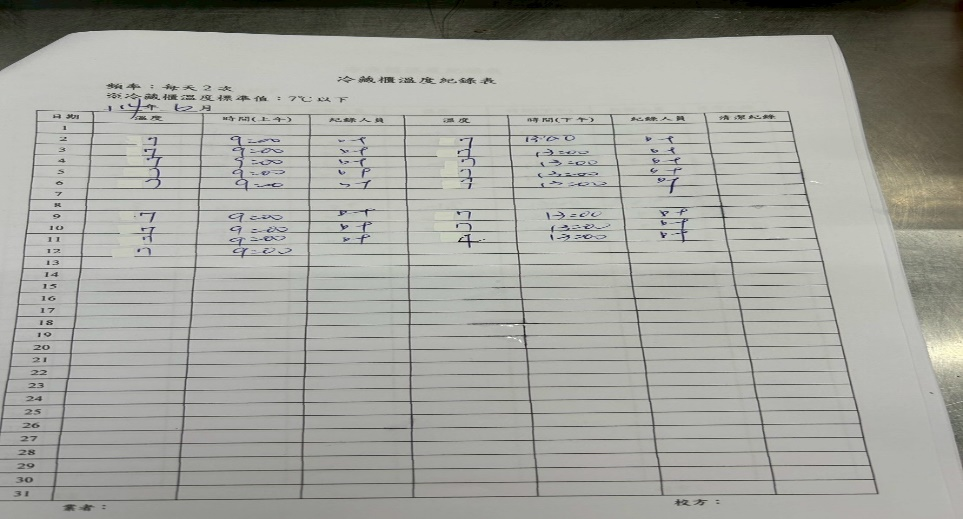 冷藏櫃溫度紀錄表
頻率：每天2次
※冷藏櫃溫度標準值：7℃以下
114年 月
日期 溫度 時間(上午) 紀錄人員 溫度 時間(下午) 紀錄人員 清潔紀錄
1
2 7 9:00 7 13:00
3 7 9:00 7 13:00
4 7 9:00 7 13:00
5 7 9:00 7 13:00
6 7 9:00 7 13:00
7
8
9 7 9:00 7 13:00
10 7 9:00 7 13:00
11 7 9:00 4 13:00
12 7 9:00
13
14
15
16
17
18
19
20
21
22
23
24
25
26
27
28
29
30
31
業者： 校方：